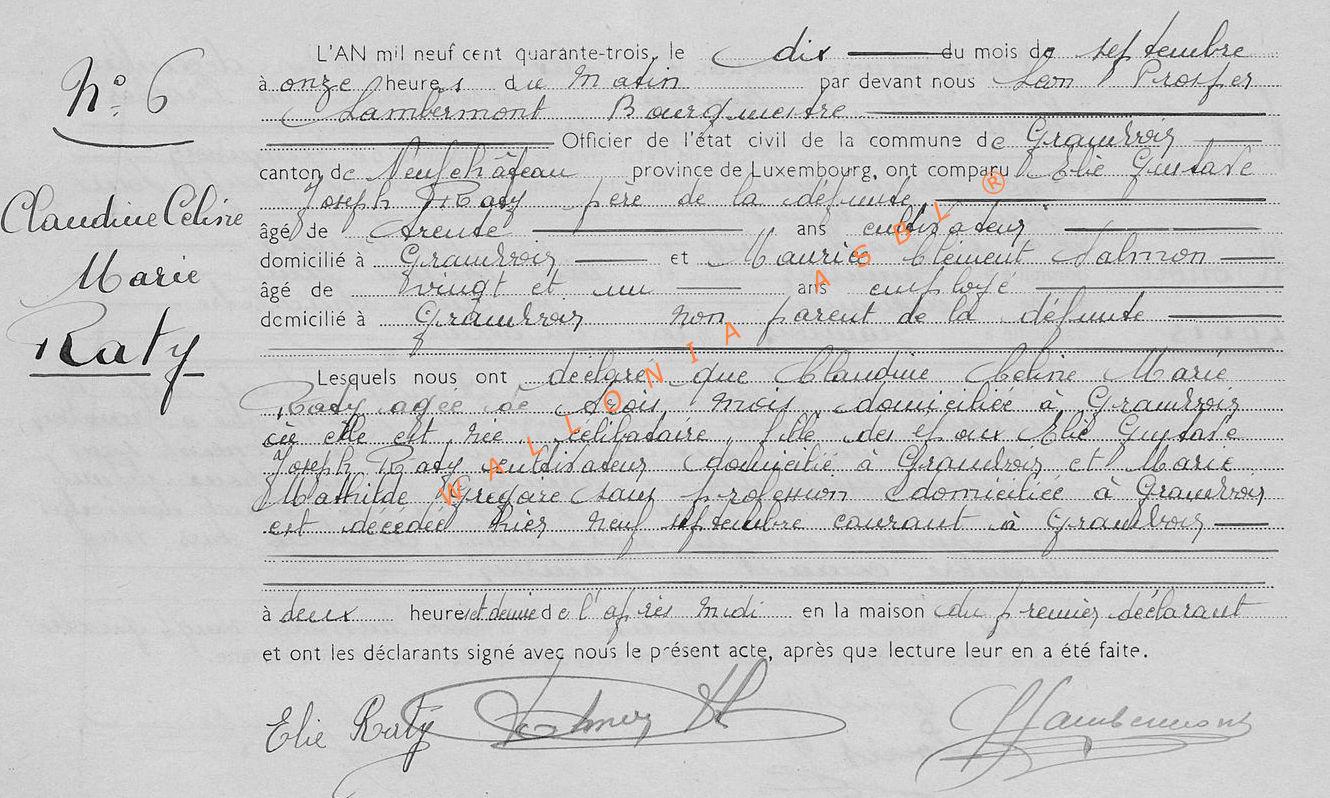 N° 6
Claudine Celine
Marie
Raty
L'AN mil neuf cent quarante-trois, le dix du mois de septembre
à onze heures du matin par devant nous Léon Prosper
Lambermont Bourgmestre
Officier de l'état civil de la commune de Grandvoir
canton de Neufchâteau province de Luxembourg, ont comparu Elie Gustave
Joseph Raty père de la défunte
âgé de trente ans cultivateur
domicilié à Grandvoir et Maurice Clément Salmon
âgé de vingt et un ans employé
domicilié à Grandvoir non parent de la défunte
Lesquels nous ont déclaré que Claudine Celine Marie
Raty agée de trois mois domiciliée à Grandvoir
où elle est née, célibataire, fille des époux Elie Gustave
Joseph Raty cultivateur domicilié à Grandvoir et Marie
Mathilde Gregoire sans profession domiciliée à Grandvoir
est décédée hier neuf septembre courant à Grandvoir
à deux heures et demie de l'après midi en la maison du premier déclarant
et ont les déclarants signé avec nous le présent acte, après que lecture leur en a été faite.
Elie Raty
Lambermont
WALLONIA ASBL ®